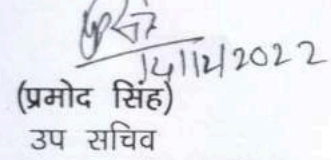 14/12/2022
(प्रमोद सिंह)
उप सचिव